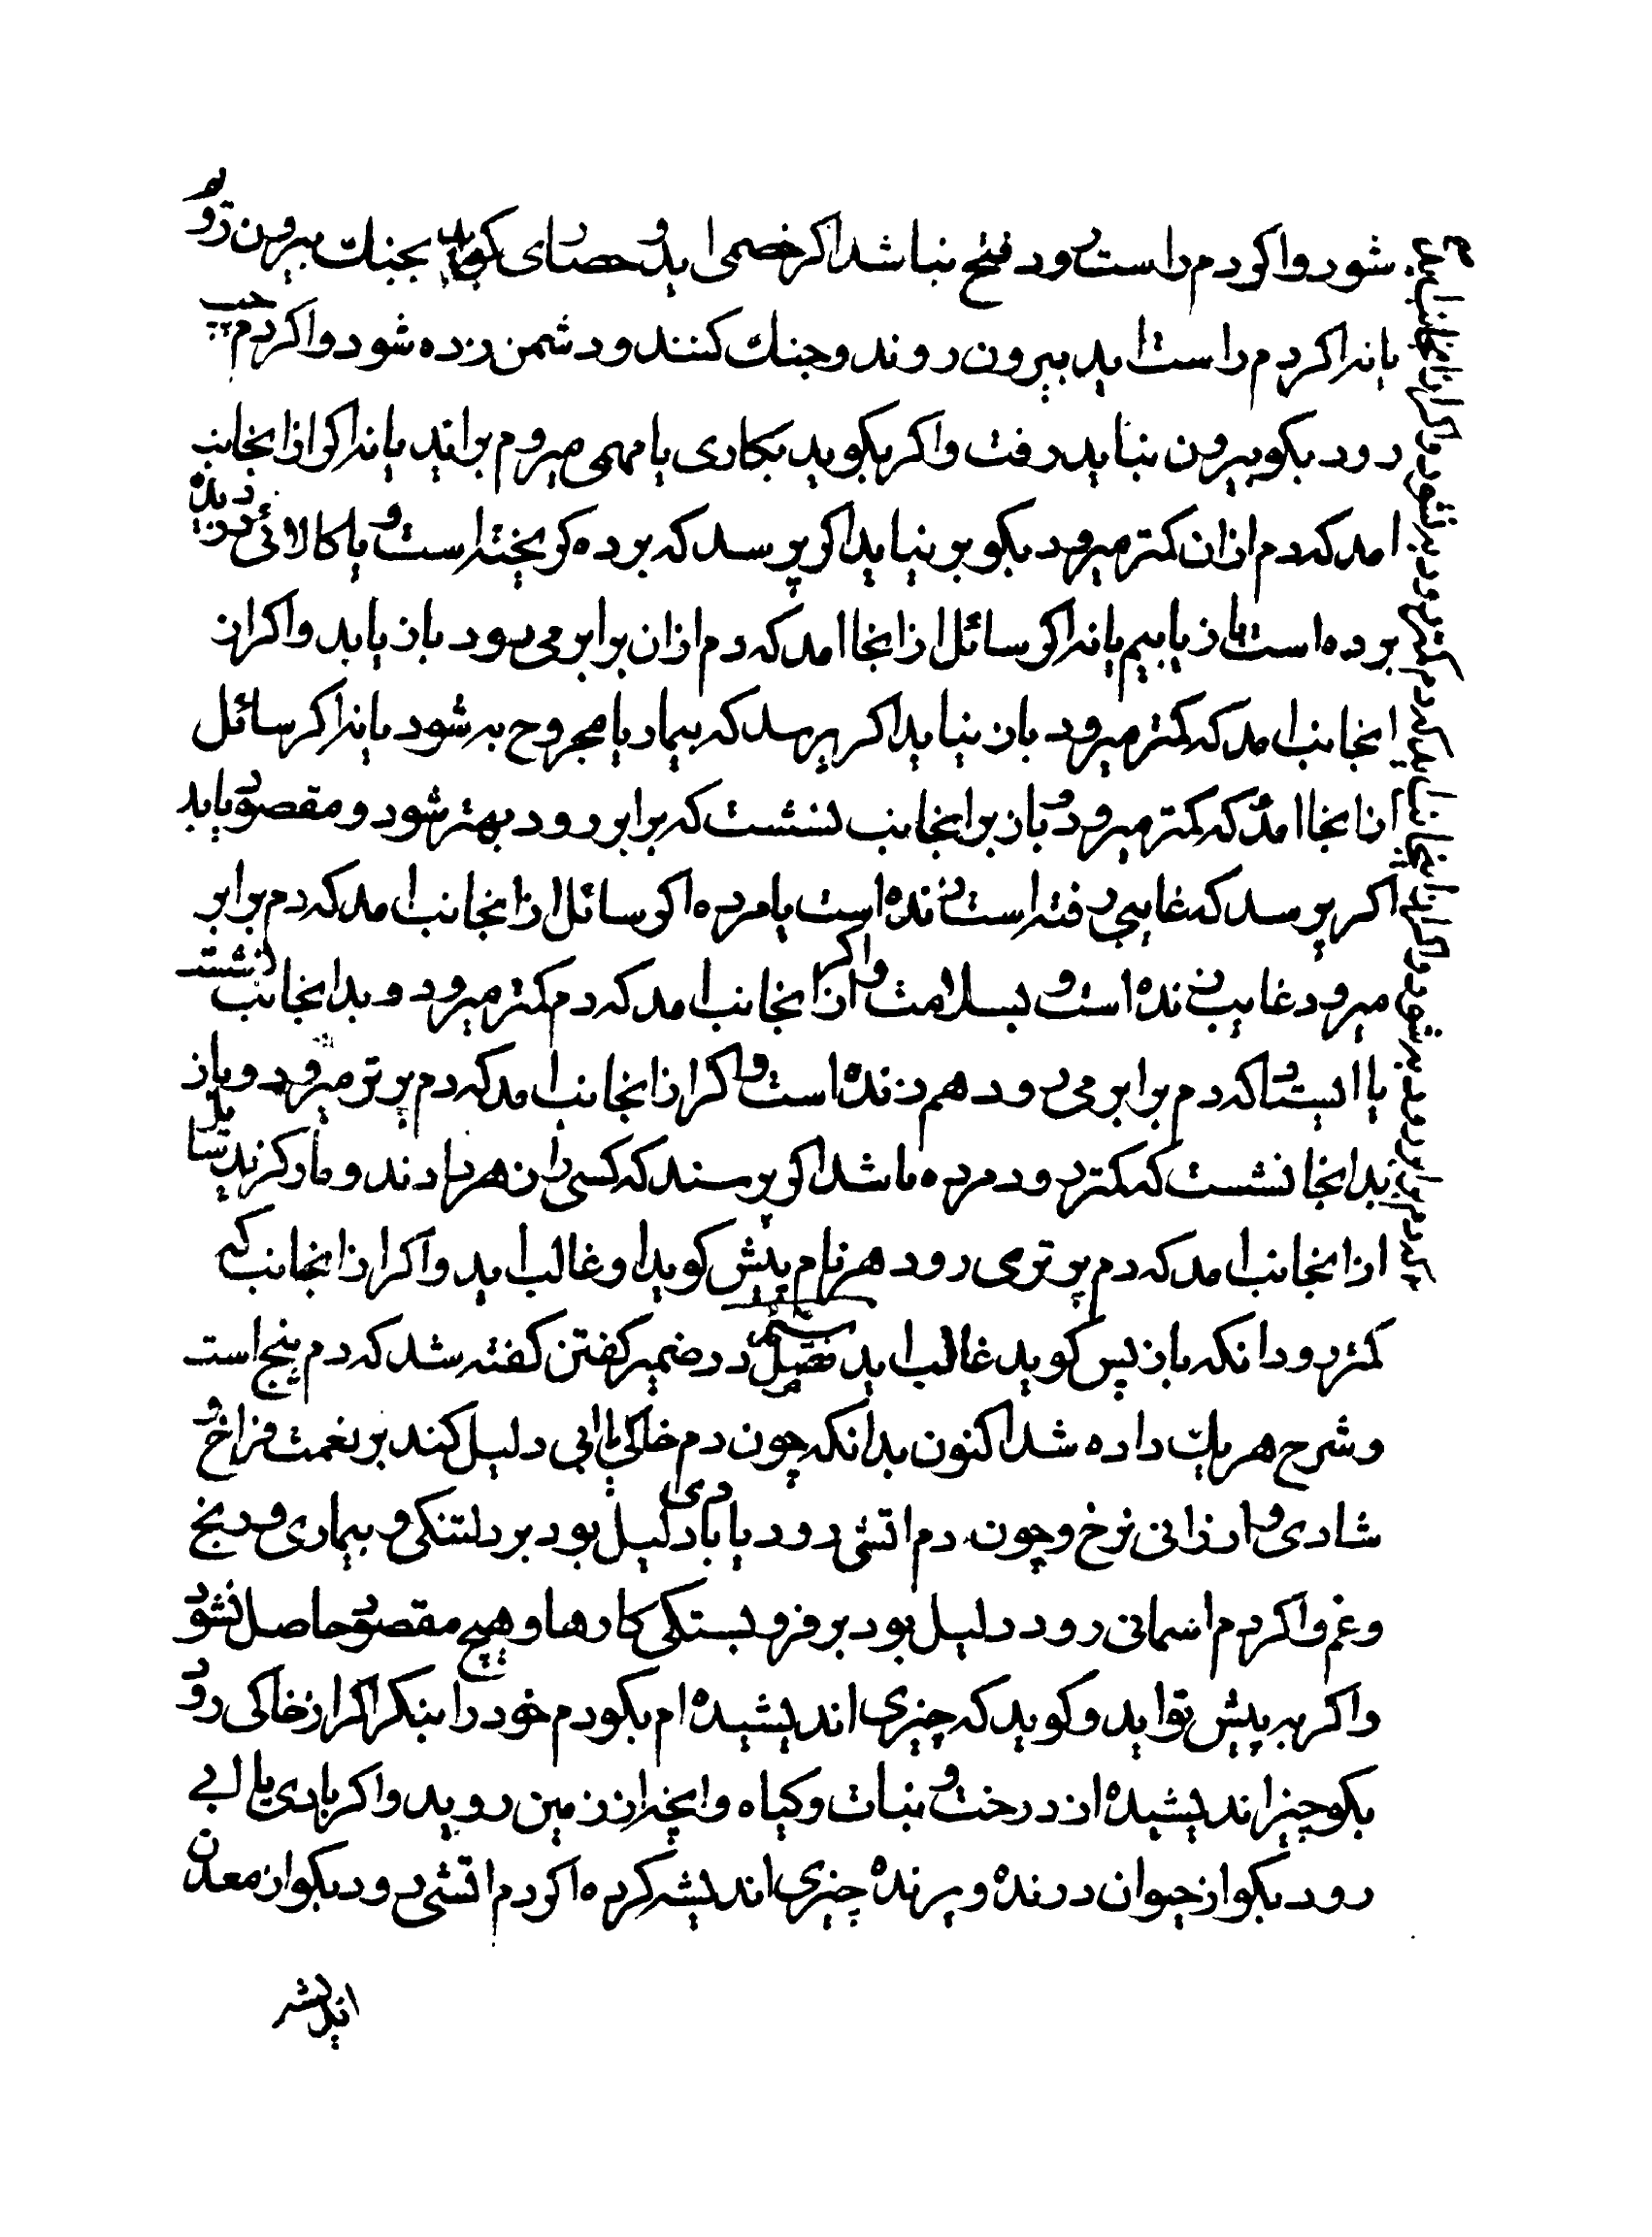 شود واکر دم راست رود فتح نباشد اکر خصمی اید و حصارای کوید بجنك بیرون رویم
یا نه اکر دم راست اید بیرون روند و جنك کنند و دشمن زده شود و اکر دم چپ
رود بکو بیرون نباید رفت واکر بکوید بکاری یا مهمی میروم براید یا نه اکر از انجانب
امد که دم ازان کمتر میرود بکو بر نیاید اکر پرسد که برده کریخته است و یا کالائی دزدیده
برده است باز یابیم یا نه اکر سائل از انجا امد که دم ازان برابر می رود باز یابد واکر از
انجانب امد که کمتر میرود باز نیاید اکر پرسد که بیمار یا مجروح به شود یا نه اکر سائل
از انجا امد که کمتر میرود و باز برانجانب نشست که برابر رود بهتر شود و مقصود یابد
اکر پرسد که غایبی رفته است زنده است یا مرده اکر سائل از انجانب امد که دم برابر
میرود غایب زنده است و بسلامت واکر از انجانب امد که دم کمتر میرود و بدانجانب نشست
یا ایستاد که دم برابر می رود هم زنده است واکر از انجانب امد که دم پرتر میرود و باز
بدانجا نشست که کمتر رود مرده باشد اکر پرسند که کسی را زهر دادند و مار کزید سائل
از انجانب امد که دم پرتری رود هر نام پیش کوید او غالب اید واکر از انجانب که
کمتر رود انکه باز پس کوید غالب اید فصل در ضمیر کفتن کفته شد که دم پنج است
وشرح هریك داده شد اکنون بدانکه چون دم خاکی یا ابی دلیل کند بر نعمت فراخ و
شادی و ارزانی نرخ و چون دم اتشی رود یا بادی دلیل بود بر دلتنکی و بیماری و رنج
وغم واکر دم اسمانی رود دلیل بود بر فرو بستکی کارها و هیچ مقصود حاصل نشود
واکر به پیش تو اید و کوید که چیزی اندیشیده ام بکو دم خود را بنکر اکر از خاکی رود
بکو چیز اندیشیده از درخت و نبات و کیاه و انچه از زمین روید واکر بادی یا ابی
رود بکو از حیوان درنده و پرنده چیزی اندیشه کرده اکر دم اتشی رود بکو از معدن
اندیشه